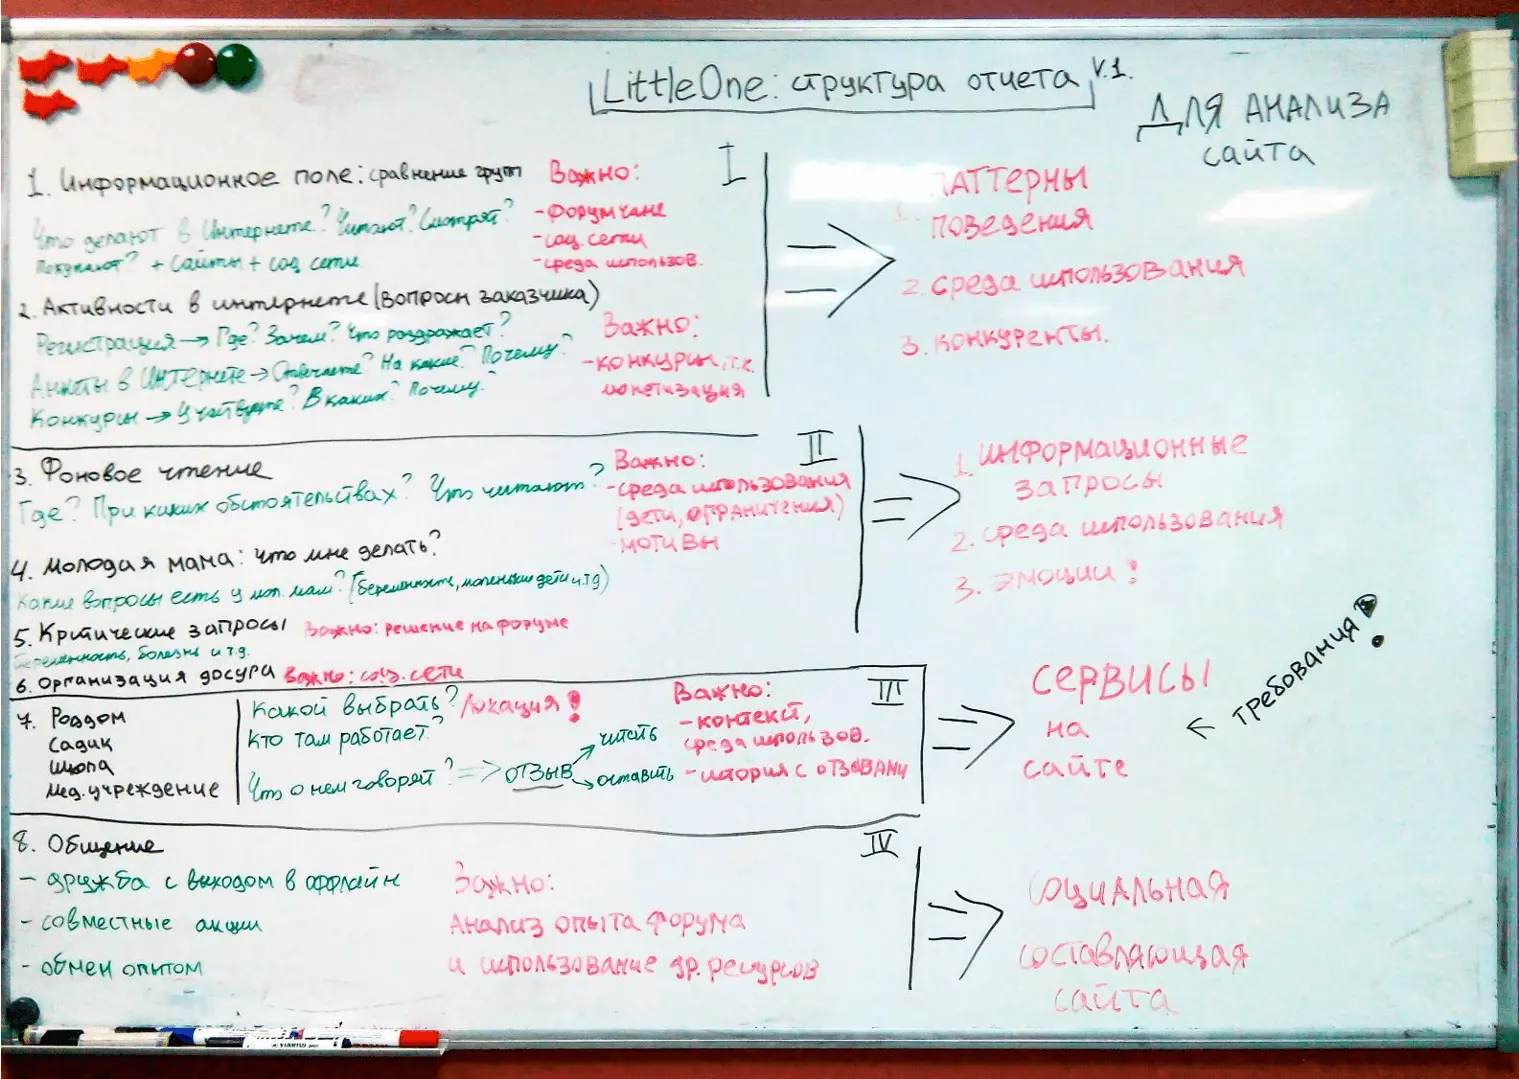 LittleOne: структура отчета v.1.
ДЛЯ АНАЛИЗА
сайта
I
1. Информационное поле: сравнение групп
Что делают в Интернете? Читают? Смотрят?
Покупают? + сайты + соц сети
Важно:
- форумчане
- соц. сети
- среда использов.
2. Активности в интернете (вопросы заказчика)
Регистрация → Где? Зачем? Что раздражает?
Анкеты в Интернете → Отвечаете? На какие? Почему?
Конкурсы → Участвуете? В каких? Почему?
Важно:
- конкурсы, т.к.
монетизация
1. ПАТТЕРНЫ
поведения
2. среда использования
3. конкуренты.
II
3. Фоновое чтение
Где? При каких обстоятельствах? Что читают?
Важно:
- среда использования
(дети, ограничения)
- мотивы
4. Молодая мама: что мне делать?
Какие вопросы есть у мол. мам? (беременность, маленькие дети и т.д)
5. Критические запросы Важно: решение на форуме
Беременность, болезнь и т.д.
6. Организация досуга Важно: соц. сети
1. ИНФОРМАЦИОННЫЕ
запросы
2. среда использования
3. эмоции!
III
7. Роддом
Садик
Школа
Мед. учреждение
Какой выбрать? Локация!
Кто там работает?
Что о нем говорят? => отзыв
читать
оставить
Важно:
- контекст,
среда использов.
- история с отзывами
СЕРВИСЫ
на
сайте
← ТРЕБОВАНИЯ!
IV
8. Общение
- дружба с выходом в оффлайн
- совместные акции
- обмен опытом
Важно:
Анализ опыта форума
и использование др. ресурсов
СОЦИАЛЬНАЯ
составляющая
сайта